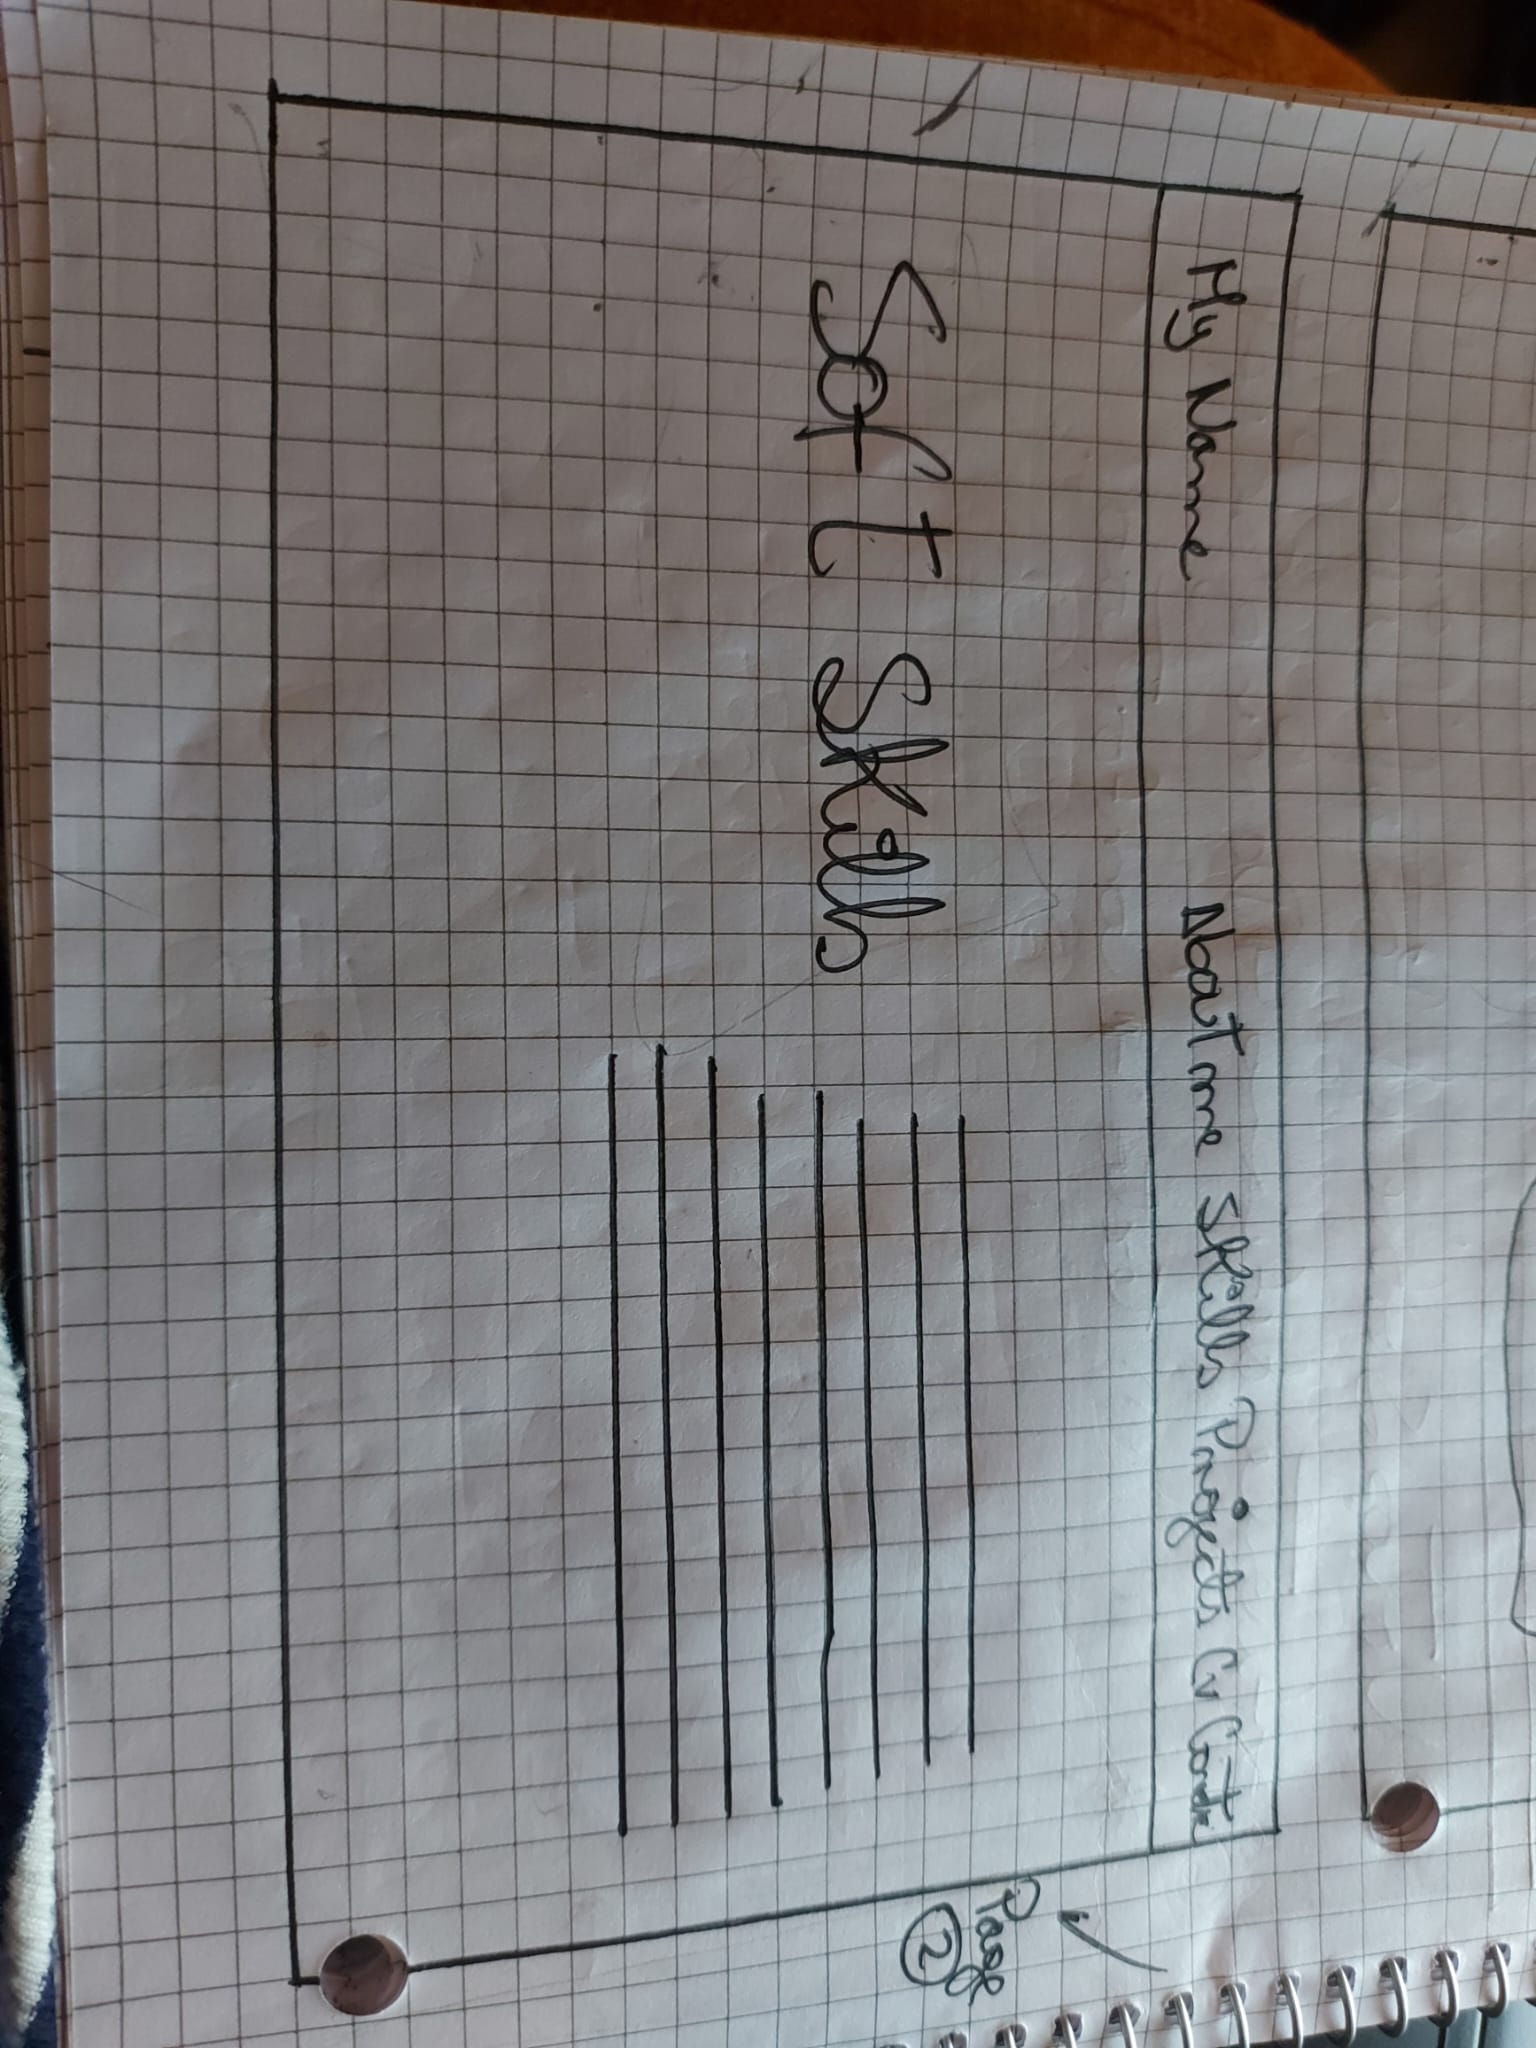 My Name About me Skills Projects Cv
Soft Skills
Page
2